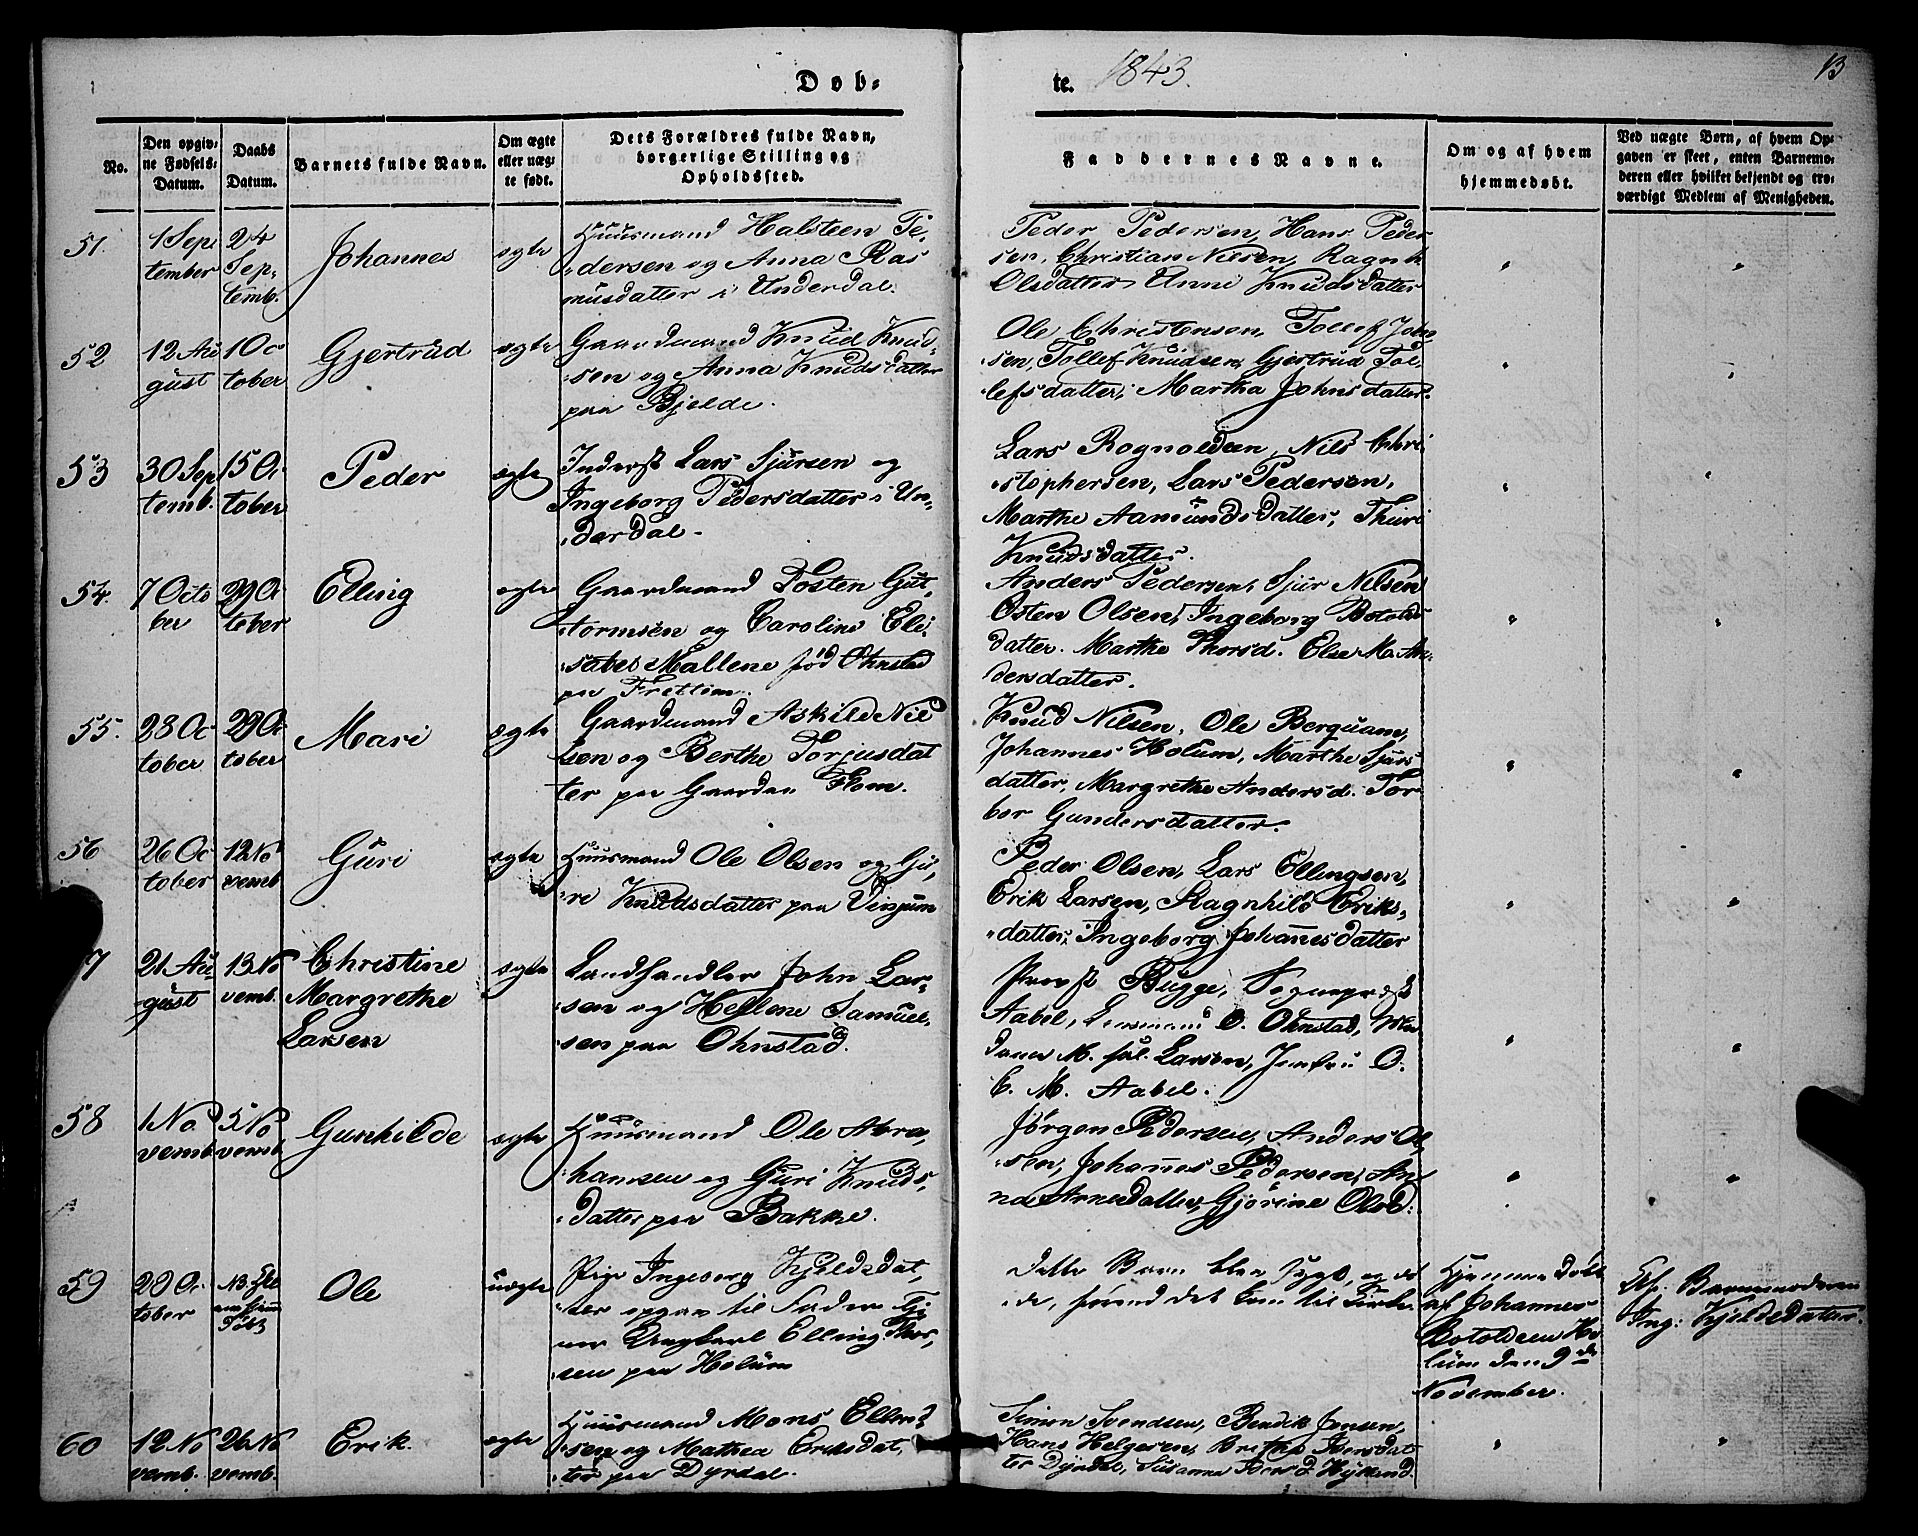 Døb-
te. 1843.
13
No.
Den opgiv-
ne Fødsels-
Datum.
Daabs
Datum.
Barnets fulde Navn.
Om ægte
eller uæg-
te født.
Dets Forældres fulde Navn,
borgerlige Stilling og
Opholdssted.
Faddernes Navne.
Om og af hvem
hjemmedøbt.
Ved uægte Børn, af hvem Op-
gaven er skeet, enten Barnemo-
deren eller hvilket bekjendt og tro-
værdigt Medlem af Menigheden.
51.
1 Sep
tember
24
Sep-
temb.
Johannes
ægte
Huusmand Halsteen Pe-
dersen og Anna Ras
musdatter i Underdal.
Peder Pedersen, Hans Peder
sen, Christian Nilsen, Ragnh
Olsdatter Anni Knudsdatter
52
12 Au
gust
1 Oc
tober
Gjertrud
ægte
Gaardmand Knud Knud-
sen og Anna Knudsdatter
paa Bjelde.
Ole Christensen, Tollef John
sen, Tollef Knudsen, Gjertrud Tol-
lefsdatter, Martha Johnsdatter.
53
30 Sep
temb.
15 Oc
tober
Peder
ægte
Inderst Lars Sjursen og
Ingeborg Pedersdatter i Un-
derdal.
Lars Rognoldsen, Nils Chri
stophersen, Lars Pedersen,
Marthe Aamundsdatter, Thuri
Knudsdatter.
54.
7 Octo
ber
29 Oc
tober
Elling
ægte
Gaardmand Tosten Gut-
tormsen og Caroline Eli-
sabet Mallene fød Ohnstad
paa Frettim.
Anders Pedersen, Sjur Nilsen
Osten Olsen, Ingeborg Botolds
datter. Marthe Thorsd. Else M. An-
dersdatter.
55.
28 Oc
tober
29 Oc
tober
Mari
ægte
Gaardmand Askild Nil
sen og Berthe Torjusdat
ter paa Gaarden Flom.
Knud Nilsen, Ole Berquam,
Johannes Holum, Marthe Sjurs
datter, Margrethe Andersd. Tor
bor Gundersdatter.
56
26 Oc
tober
12 No
vemb
Guri
ægte
Huusmand Ole Olsen og Gu-
ri Knudsdatter paa Vinjum
Peder Olsen, Lars Ellingsen,
Erik Larsen, Ragnhild Eriks-
datter, Ingeborg Johannesdatter
7
21 Au
gust
13 No
vemb.
Christine
Margrethe
Larsen
ægte
Landhandler John Lar-
sen og Hellene Samuel-
sen paa Ohnstad.
Provst Bugge, Sognepræst
Aabel, Lensmand O. Ohnstad, Ma
dame M. sal. Larsen, Jomfru O.
C. M. Aabel.
58
1 No
vemb
5 No
vemb.
Gunhilde
ægte
Huusmand Ole Abra-
hamsen og Guri Knuds-
datter paa Bakke.
Jørgen Pedersen, Anders Ol
sen, Johannes Pedersen, An
na Arnesdatter, Gjørine Olsd.
59
29 Oc
tober
Ole
uægte
Pige Ingeborg Kjeldsdat-
ter opgav til Fader Tje
ner Ungkarl Elling Thor-
sen paa Holum
Dette Barn blev sygt, og dø
de, førend det kom til Kirke
Hjemmedøbt
af Johannes
Botoldsen Ho
lum den 9de
November.
Af Barnemoderen
Ing: Kjeldsdatter.
60
12 No
vemb.
26 No
vemb.
Erik.
ægte
Huusmand Mons Elling
sen og Mathea Eriksdat-
ter paa Dyrdal.
Simon Svendsen, Bendik Jensen,
Hans Helgesen, Brithe Iversdat
ter Dyrdal, Susanna Iversd. Hylland.